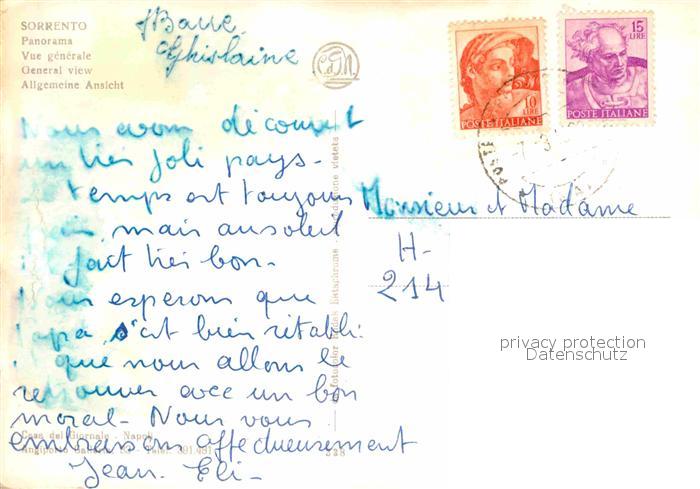 SORRENTO
Panorama
Vue générale
General view
Allgemeine Ansicht
Ghislaine
10 LIRE
POSTE ITALIANE
15 LIRE
POSTE ITALIANE
Nous avons découvert
un très joli pays-
temps est toujours
mais au soleil
il fait très bon-
Nous esperons que
Papa s'est bien rétabli
que nous allons le
retrouver avec un bon
moral- Nous vous
embrassons affectueusement
Jean. Eli-
Monsieur et Madame
H-
214
Casa del Giornale - Napoli
privacy protection
Datenschutz